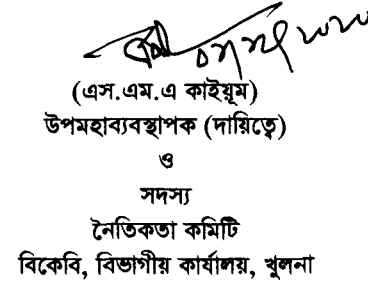 (এস.এম.এ কাইয়ূম)
উপমহাব্যবস্থাপক (দায়িত্বে)
ও
সদস্য
নৈতিকতা কমিটি
বিকেবি, বিভাগীয় কার্যালয়, খুলনা